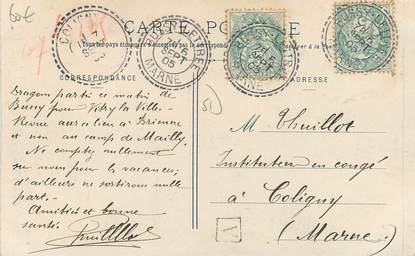 60€
CARTE POSTALE
CORRESPONDANCE
ADRESSE
MARNE
05
51
Dragons partis ce matin de
Bussy pour Vitry la Ville.
Revue aura lieu à Brienne
et non au camp de Mailly.
Ne comptez nullement
sur nous pour les vacances;
d'ailleurs ne sortirons nulle
part.
Amitiés et bonne
santé.
M Thuillot
Instituteur en congé
à Coligny
(Marne)